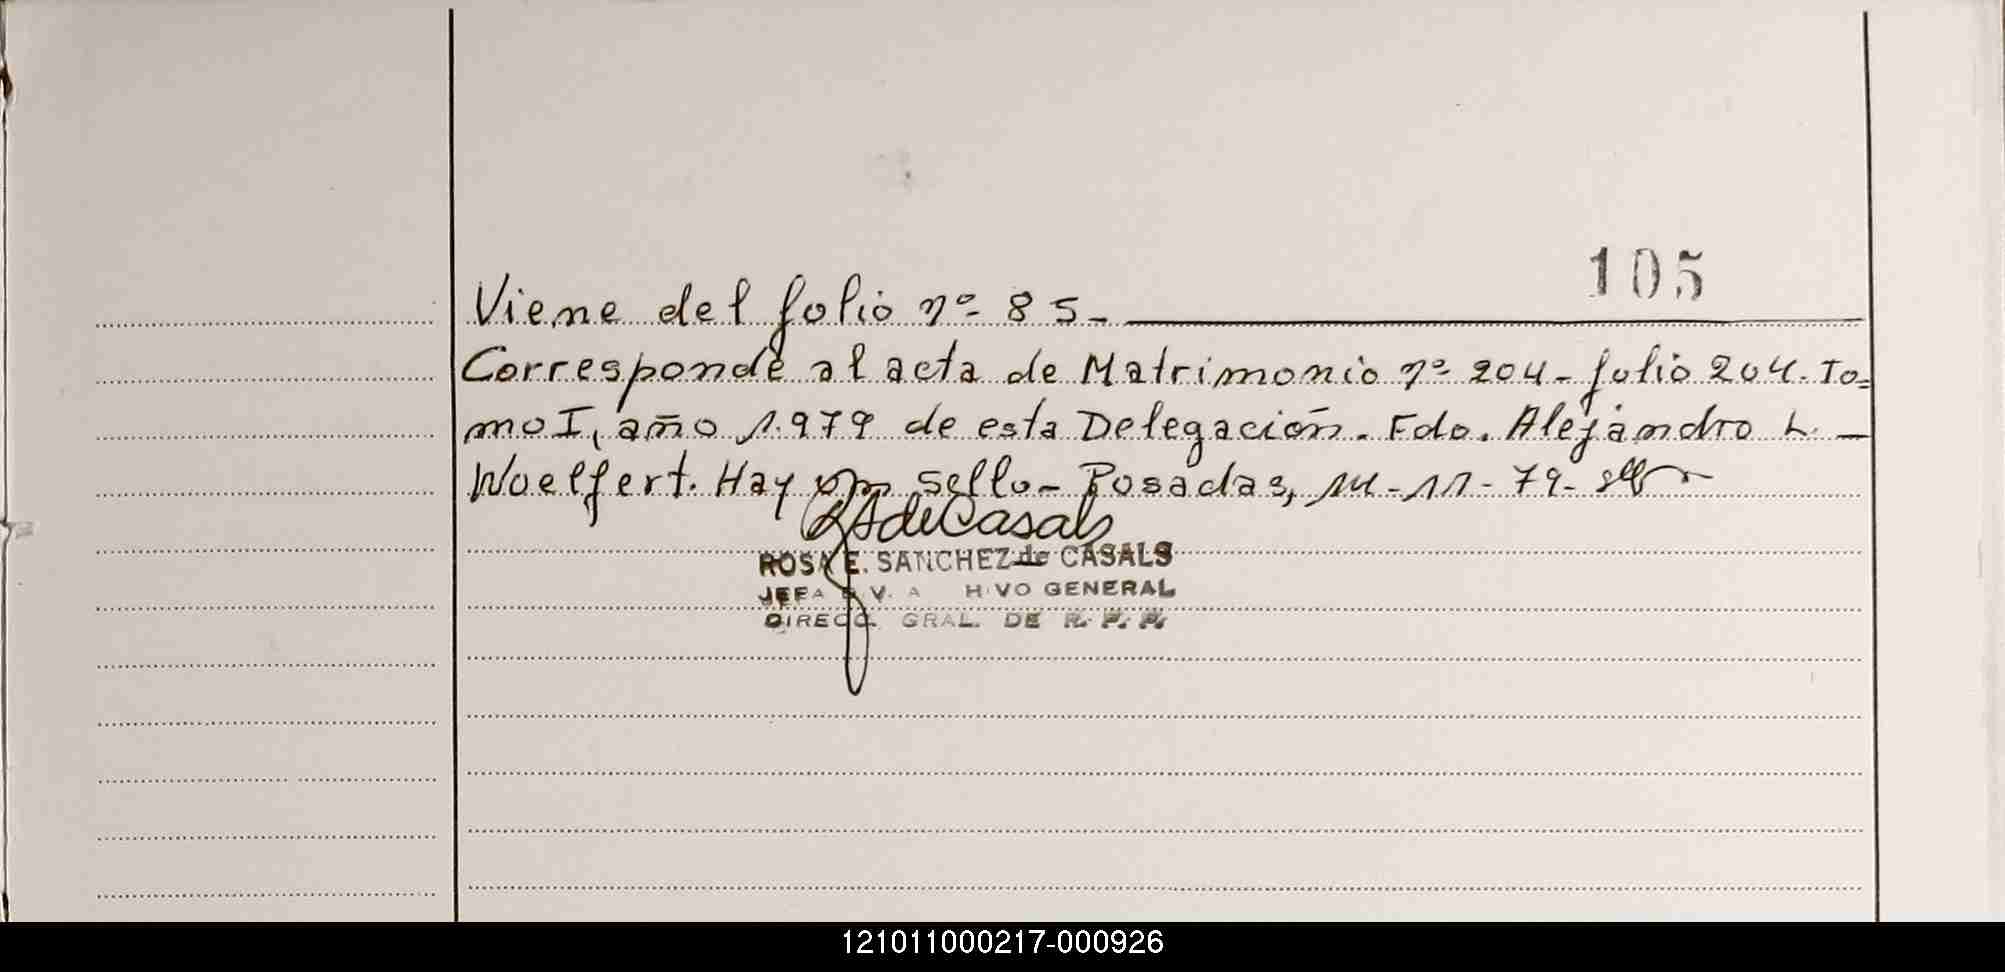 105
Viene del folio nº 85-
Corresponde al acta de Matrimonio nº 204- folio 204. To=
mo I, año 1.979 de esta Delegación. Fdo. Alejandro L. -
Woelfert. Hay un sello- Posadas, 14-11-79-
RSdeCasals
ROSA E. SANCHEZ de CASALS
JEFA V. A H VO GENERAL
DIRECC. GRAL. DE R. P. P.
121011000217-000926